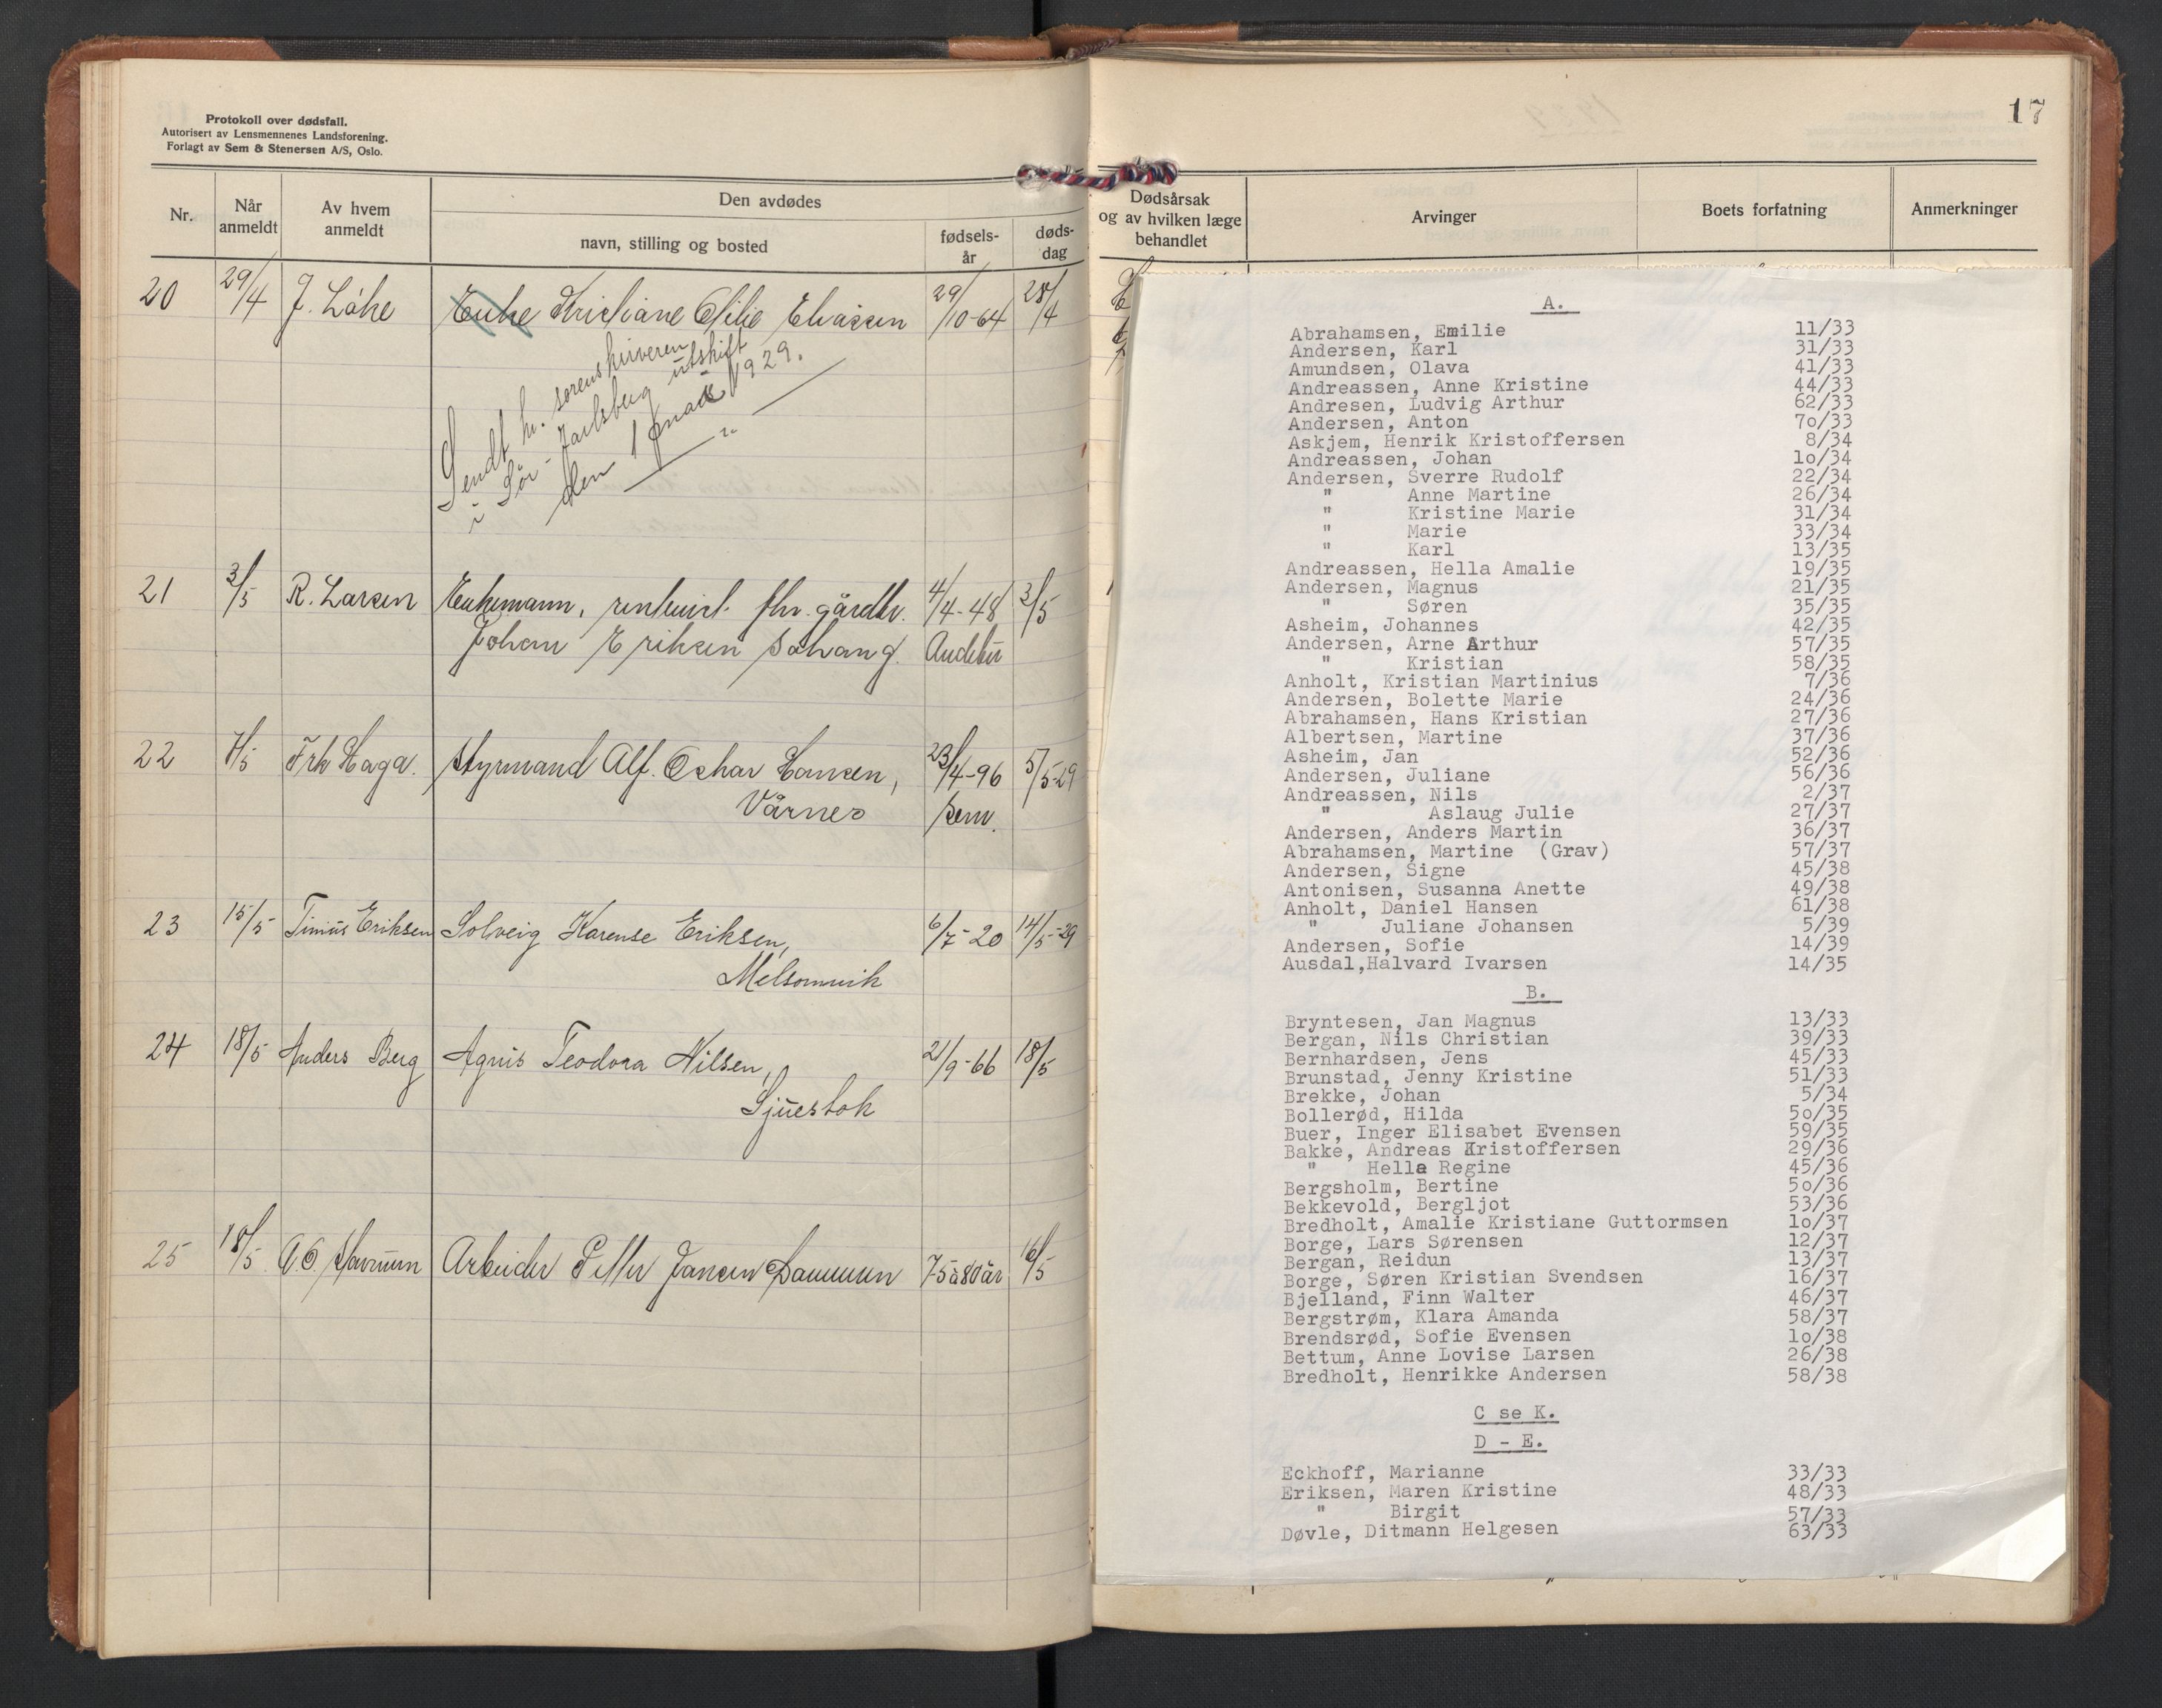 Protokoll over dødsfall.
Autorisert av Lensmennenes Landsforening.
Forlagt av Sem & Stenersen A/S, Oslo.
Nr.
Når anmeldt
Av hvem anmeldt
Den avdødes
navn, stilling og bosted
fødsels-år
døds-dag
20 29/4 J. Låhe Enke Kristiane Otilie Eliassen 29/10-64 28/4
Sendt hr. sorenskriveren
i Sör-Jarlsberg utskift
den 1 1929.
21 3/5 R. Larsen Enkemann, fhv. gårdbr. 4/4-48 3/5
Johan Eriksen Andebu
22 7/5 Frk Haga. Styrmand Alf. Oskar Hansen, 23/4-96 5/5-29
Vårnes Sem.
23 15/5 Timius Eriksen Solveig Karense Eriksen, 6/7-20 14/5-29
Melsomvik
24 18/5 Anders Berg Agnis Teodora Nilsen, 21/9-66 18/5
Sjuestok
25 18/5 Arbeider Petter Jansen 75 à 80 år 16/5
17
Dødsårsak
og av hvilken læge
behandlet
Arvinger
Boets forfatning
Anmerkninger
A.
Abrahamsen, Emilie 11/33
Andersen, Karl 31/33
Amundsen, Olava 41/33
Andreassen, Anne Kristine 44/33
Andresen, Ludvig Arthur 62/33
Andersen, Anton 7o/33
Askjem, Henrik Kristoffersen 8/34
Andreassen, Johan lo/34
Andersen, Sverre Rudolf 22/34
" Anne Martine 26/34
" Kristine Marie 31/34
" Marie 33/34
" Karl 13/35
Andreassen, Hella Amalie 19/35
Andersen, Magnus 21/35
" Søren 35/35
Asheim, Johannes 42/35
Andersen, Arne Arthur 57/35
" Kristian 58/35
Anholt, Kristian Martinius 7/36
Andersen, Bolette Marie 24/36
Abrahamsen, Hans Kristian 27/36
Albertsen, Martine 37/36
Asheim, Jan 52/36
Andersen, Juliane 56/36
Andreassen, Nils 2/37
" Aslaug Julie 27/37
Andersen, Anders Martin 36/37
Abrahamsen, Martine (Grav) 57/37
Andersen, Signe 45/38
Antonisen, Susanna Anette 49/38
Anholt, Daniel Hansen 61/38
" Juliane Johansen 5/39
Andersen, Sofie 14/39
Ausdal,Halvard Ivarsen 14/35
B.
Bryntesen, Jan Magnus 13/33
Bergan, Nils Christian 39/33
Bernhardsen, Jens 45/33
Brunstad, Jenny Kristine 51/33
Brekke, Johan 5/34
Bollerød, Hilda 5o/35
Buer, Inger Elisabet Evensen 59/35
Bakke, Andreas Kristoffersen 29/36
" Hella Regine 45/36
Bergsholm, Bertine 5o/36
Bekkevold, Bergljot 53/36
Bredholt, Amalie Kristiane Guttormsen lo/37
Borge, Lars Sørensen 12/37
Bergan, Reidun 13/37
Borge, Søren Kristian Svendsen 16/37
Bjelland, Finn Walter 46/37
Bergstrøm, Klara Amanda 58/37
Brendsrød, Sofie Evensen lo/38
Bettum, Anne Lovise Larsen 26/38
Bredholt, Henrikke Andersen 58/38
C se K.
D - E.
Eckhoff, Marianne 33/33
Eriksen, Maren Kristine 48/33
" Birgit 57/33
Døvle, Ditmann Helgesen 63/33